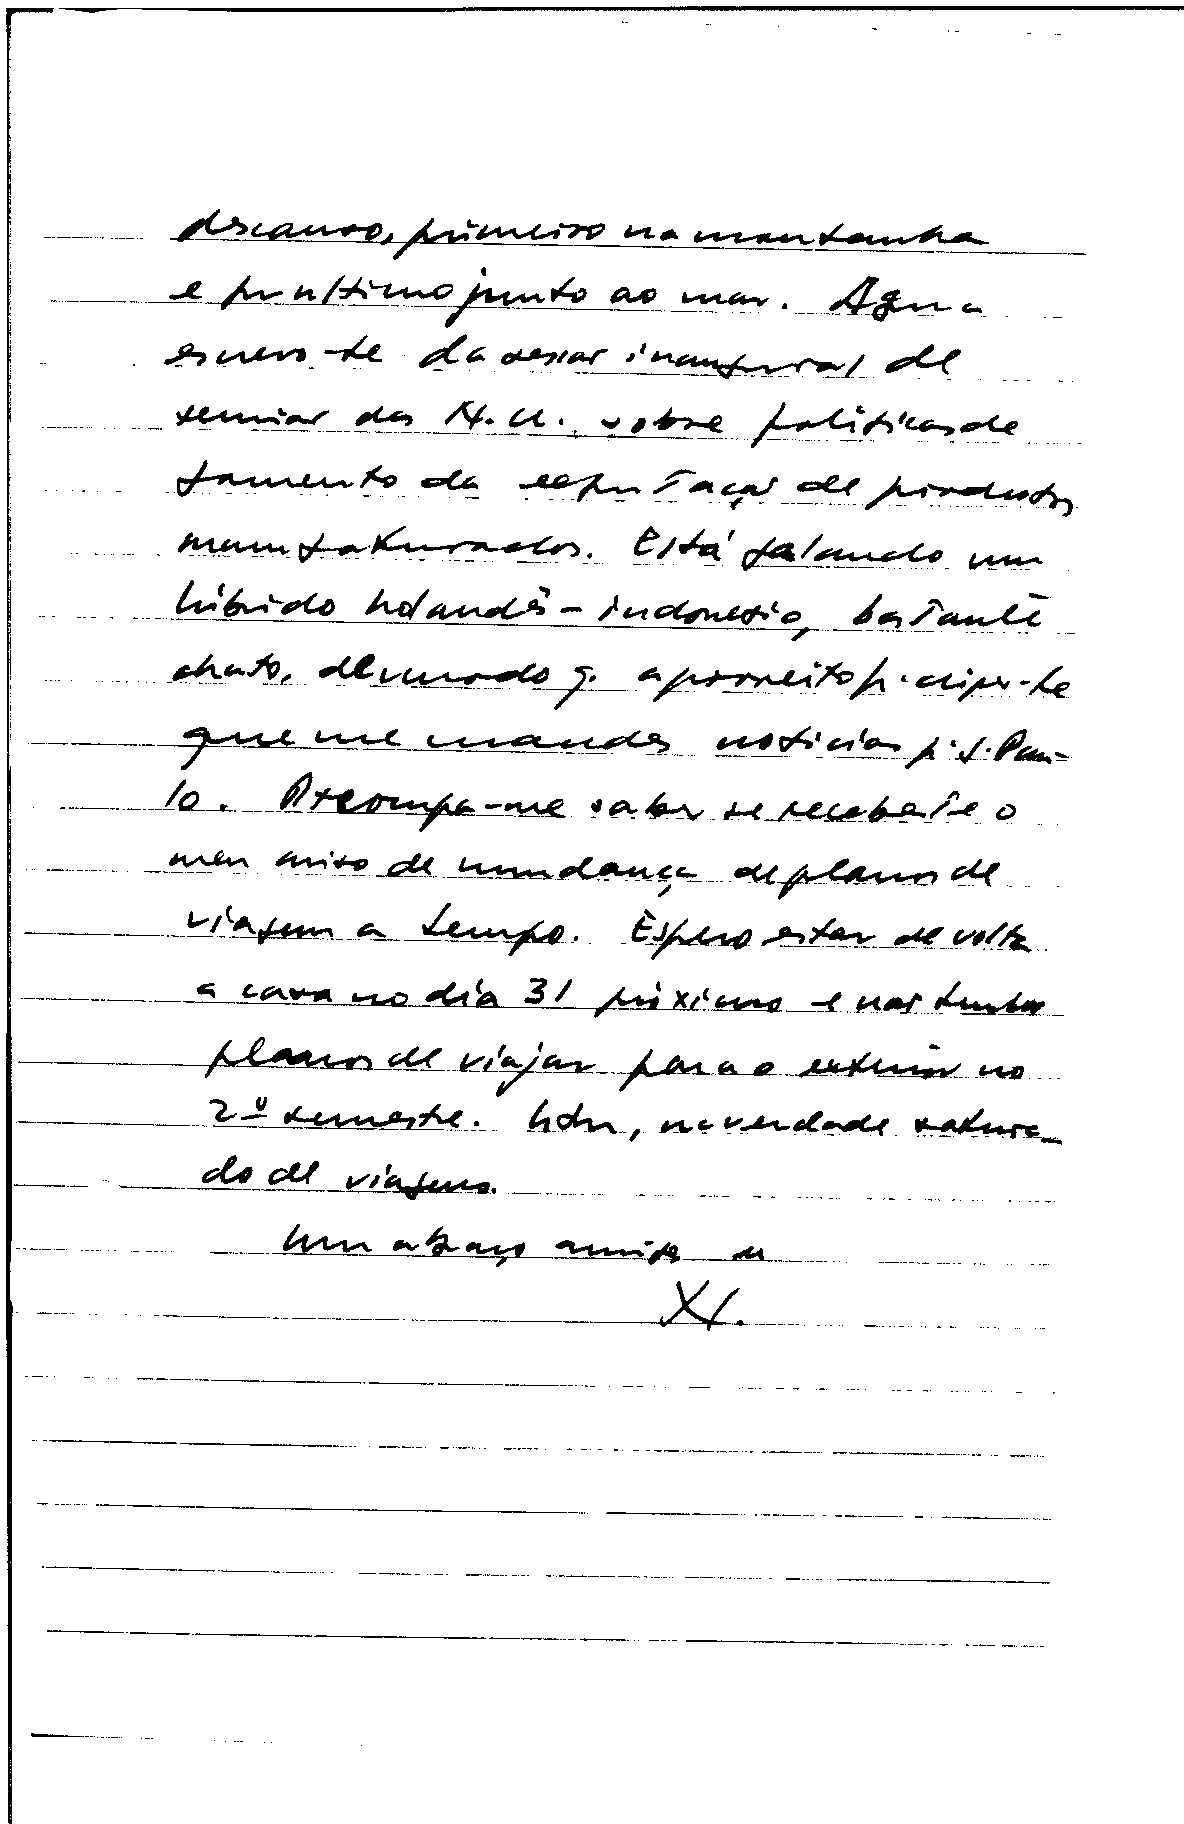 descanso, primeiro na montanha
e por último junto ao mar. Agora
escrevo-te da sessão inaugural de
das N.U. sobre políticas de
fomento da exportação de produtos
manufaturados. Está falando um
híbrido holandês-indonésio, bastante
chato, de modo q. aproveito p.
que me mandes notícias p. S. Pau-
lo. saber se recebeste o
meu aviso de mudança de planos de
viagem a tempo. Espero estar de volta
a casa no dia 31 próximo e não tenho
planos de viajar para o exterior no
2º semestre. Estou, na verdade satura-
do de viagens.
Um abraço amigo